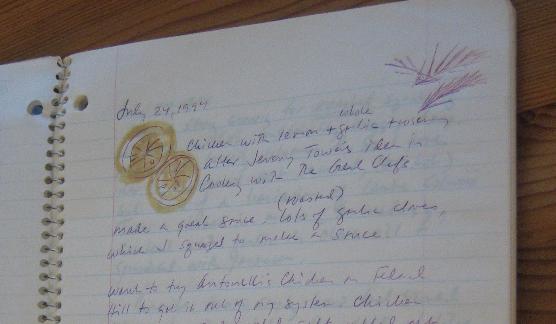 July 24, 1994
whole
Chicken with lemon + garlic + rosemary
after Jeremy Towers idea in
Cooking with the Great Chefs
(roasted)
made a great sauce lots of garlic cloves,
which I squeezed to make a sauce
want to try Antonelli's Chicken on
still to get it out of my system Chicken